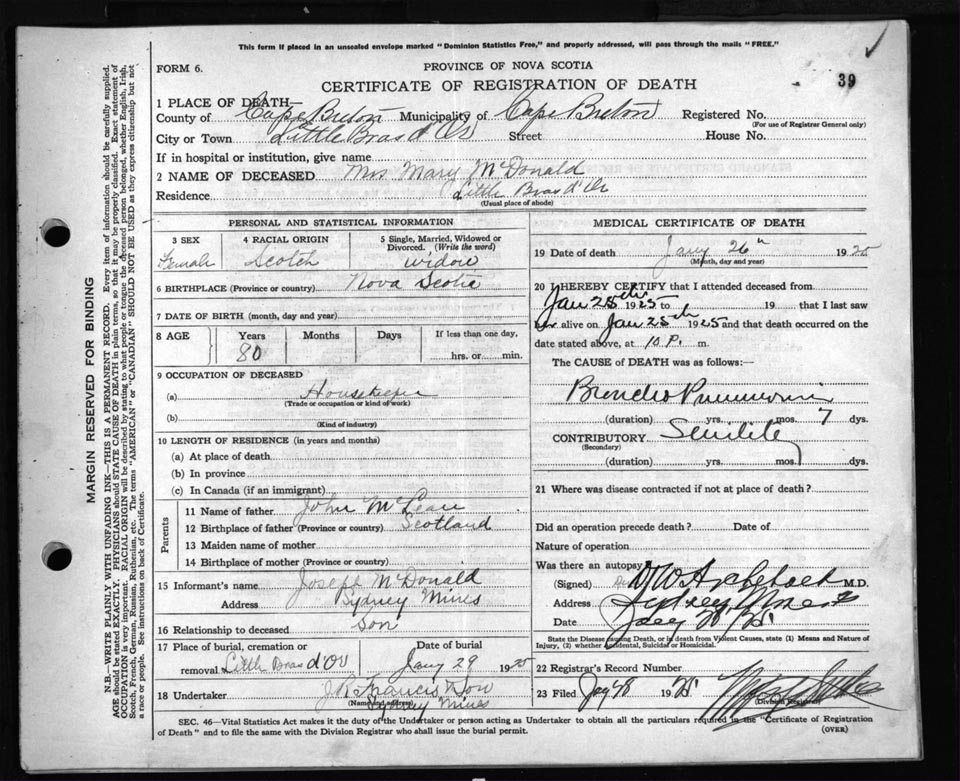 This form if placed in an unsealed envelope marked "Dominion Statistics Free," and properly addressed, will pass through the mails "FREE."
FORM 6.
PROVINCE OF NOVA SCOTIA
39
CERTIFICATE OF REGISTRATION OF DEATH
1 PLACE OF DEATH—
County of Cape Breton Municipality of Cape Breton Registered No.
(For use of Registrar General only)
City or Town Little Bras d'Or Street House No.
If in hospital or institution, give name
2 NAME OF DECEASED Mrs Mary McDonald
Residence Little Bras d'Or
(Usual place of abode)
PERSONAL AND STATISTICAL INFORMATION
3 SEX 4 RACIAL ORIGIN 5 Single, Married, Widowed or Divorced. (Write the word)
Female Scotch widow
6 BIRTHPLACE (Province or country) Nova Scotia
7 DATE OF BIRTH (month, day and year)
8 AGE Years Months Days If less than one day,
80 hrs. or min.
9 OCCUPATION OF DECEASED
(a) Housekeeper
(Trade or occupation or kind of work)
(b)
(Kind of industry)
10 LENGTH OF RESIDENCE (in years and months)
(a) At place of death
(b) In province
(c) In Canada (if an immigrant)
Parents
11 Name of father John McLean
12 Birthplace of father (Province or country) Scotland
13 Maiden name of mother
14 Birthplace of mother (Province or country)
15 Informant's name Joseph McDonald
Address Sydney Mines
16 Relationship to deceased Son
17 Place of burial, cremation or Date of burial
removal Little Bras d'Or Jany 29 1925
18 Undertaker J.R. Francis & Son
(Name and address) Sydney Mines
MEDICAL CERTIFICATE OF DEATH
19 Date of death Jany 26th 1925
(Month, day and year)
20 I HEREBY CERTIFY that I attended deceased from
Jan 25th 1925 to 19 that I last saw
her alive on Jan 25th 1925 and that death occurred on the
date stated above, at 10 P. m.
The CAUSE of DEATH was as follows:—
Broncho Pneumonia
(duration) yrs. mos. 7 dys.
CONTRIBUTORY Senility
(Secondary)
(duration) yrs. mos. dys.
21 Where was disease contracted if not at place of death?
Did an operation precede death? Date of
Nature of operation
Was there an autopsy
(Signed) Archibald M.D.
Address Sydney Mines
Date
State the Disease causing Death, or in death from Violent Causes, state (1) Means and Nature of
Injury, (2) whether Accidental, Suicidal or Homicidal.
22 Registrar's Record Number
23 Filed 19 25
(Division Registrar)
SEC. 46—Vital Statistics Act makes it the duty of the Undertaker or person acting as Undertaker to obtain all the particulars required in the "Certificate of Registration
of Death" and to file the same with the Division Registrar who shall issue the burial permit.
(OVER)
MARGIN RESERVED FOR BINDING
N.B.—WRITE PLAINLY WITH UNFADING INK—THIS IS A PERMANENT RECORD. Every item of information should be carefully supplied.
AGE should be stated EXACTLY. PHYSICIANS should STATE CAUSE OF DEATH in plain terms, so that it may be properly classified. Exact statement of
OCCUPATION is very important. RACIAL ORIGIN will be described by stating to what people or tongue the deceased person belonged, whether English, Irish,
Scotch, French, German, Russian, Ruthenian, etc. The terms "AMERICAN" or "CANADIAN" SHOULD NOT BE USED as they express citizenship but not
a race or people. See instructions on back of Certificate.